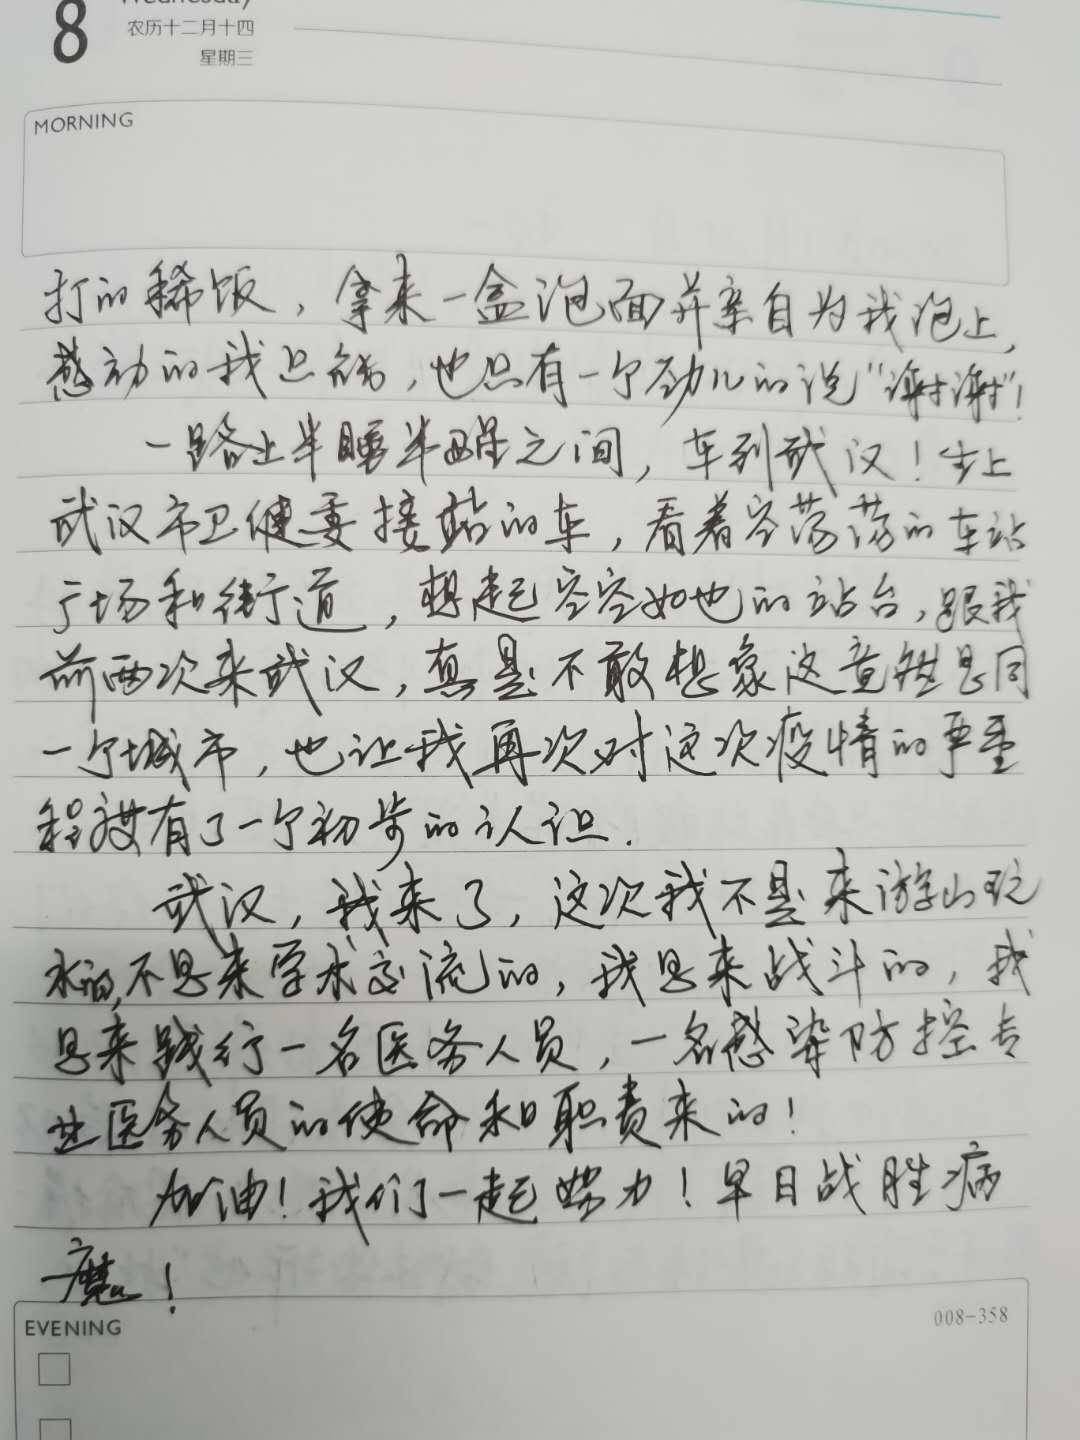 8
Wednesday
农历十二月十四
星期三
MORNING
打的稀饭，拿来一盒泡面并亲自为我泡上，
感动的我只能，也只有一个劲儿的说“谢谢”！
一路上半睡半醒之间，车到武汉！坐上
武汉市卫健委接站的车，看着空荡荡的车站
广场和街道，想起空空如也的站台，跟我
前两次来武汉，真是不敢想象这竟然是同
一个城市，也让我再次对这次疫情的严重
程度有了一个初步的认识．
武汉，我来了，这次我不是来游山玩
水的，不是来学术交流的，我是来战斗的，我
是来践行一名医务人员，一名感染防控专
业医务人员的使命和职责来的！
加油！我们一起努力！早日战胜病
魔！
EVENING
008-358